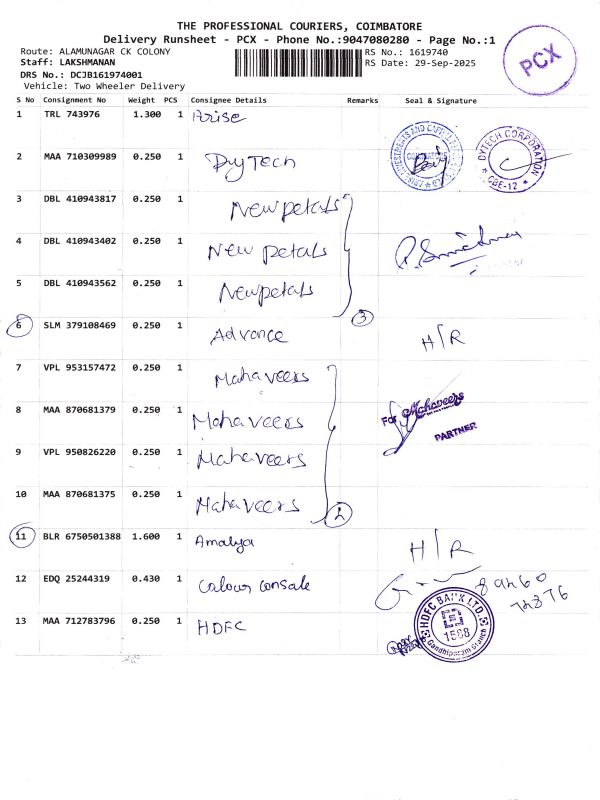 THE PROFESSIONAL COURIERS, COIMBATORE
Delivery Runsheet - PCX - Phone No.:9047080280 - Page No.:1
Route: ALAMUNAGAR CK COLONY RS No.: 1619740
Staff: LAKSHMANAN RS Date: 29-Sep-2025
DRS No.: DCJB161974001
Vehicle: Two Wheeler Delivery
PCX
S No Consignment No Weight PCS Consignee Details Remarks Seal & Signature
1 TRL 743976 1.300 1 Arise
2 MAA 710309989 0.250 1 DyTech
DYTECH CORPORATION * CBE-12 *
3 DBL 410943817 0.250 1 Newpetals
4 DBL 410943402 0.250 1 New petals
5 DBL 410943562 0.250 1 Newpetals
3
6 SLM 379108469 0.250 1 Advance H/R
7 VPL 953157472 0.250 1 Mahaveers
8 MAA 870681379 0.250 1 Mahaveers For Mahaveers
PARTNER
9 VPL 950826220 0.250 1 Mahaveers
10 MAA 870681375 0.250 1 Mahaveers
2
11 BLR 6750501388 1.600 1 Amalya H/R
12 EDQ 25244319 0.430 1 Colour consale
13 MAA 712783796 0.250 1 HDFC
HDFC BANK LTD. 1588 Gandhipuram Branch